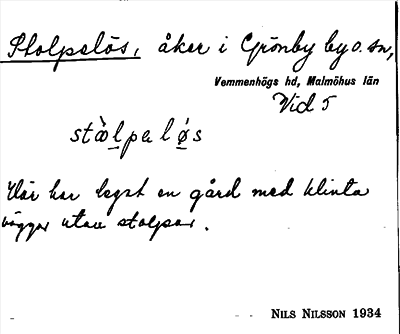 Stolpelös, åker i Grönby by o. sn,
Vemmenhögs hd, Malmöhus län
Vid 5
stὰlpalǿs
Här har legat en gård med klinta
väggar utan stolpar.
NILS NILSSON 1934